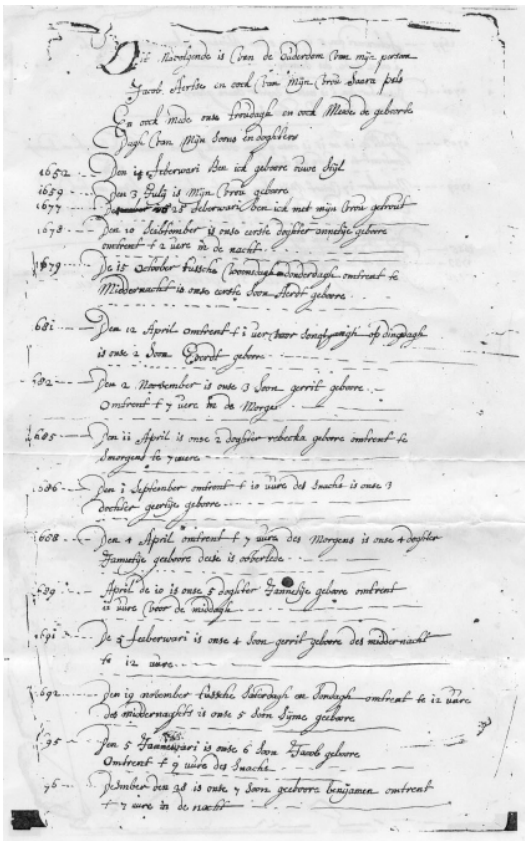 Dit Navolgende is Van de Ouderdom Van mijn persoon
Jacob Aertse en oock Van Mijn Vrou Saera pels
En oock Mede onse troudagh en oock Mede de geboorte
Dagh Van Mijn Soons en doghters
1652 Den 14 Feberwari Ben ick geboore nuwe Stijl
1659 Den 3 Julij is Mijn Vrou geboore
1677 25 Feberwari Ben ick met mijn Vrou getrout
1678 Den 10 Seibtomber is onse eerste doghter annetije geboore
omtrent t 2 uere in de nacht
1679 De 15 October tussche Woonsdagh donderdagh omtrent te
Middernacht is onse eerste Soon Aerdt geboore
1681 Den 12 April omtrent t 1 uer voor op dingsdagh
is onse 2 Soon Evordt geboore
1682 Den 2 November is onse 3 Soon gerrit geboore
omtrent t 7 uere in de Morge
1685 Den 11 April is onse 2 doghter rebecka geboore omtrent te
Smorgens te 7 uere
1686 Den 1 September omtrent t 10 uure des Snachs is onse 3
dochter geertije geboore
1688 Den 4 April omtrent t 7 uure des Morgens is onse 4 doghter
Jannetije geeboore deese is ooberlede
689 April de 10 is onse 5 doghter Jannetije geboore omtrent
11 uure Voor de middagh
1691 De 5 Feeberwari is onse 4 Soon gerrit geboore des midder nacht
te 12 uure
692 Den 19 november tussche Saterdagh en Sondagh omtrent te 12 uure
des middernaghts is onse 5 Soon Sijme geeboore
95 Den 5 Janneuwari is onse 6 Soon Jacob geboore
Omtrent t 9 uure des Snachs
96 Desember den 28 is onse 7 Soon geeboore benijamen omtrent
t 7 uure in de nacht